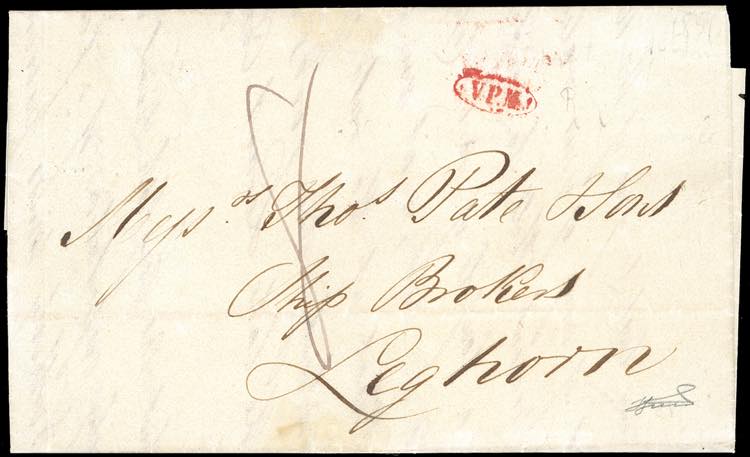 V.P.M.
8
Messrs Thos Pate & Sons
Ship Brokers
Leghorn